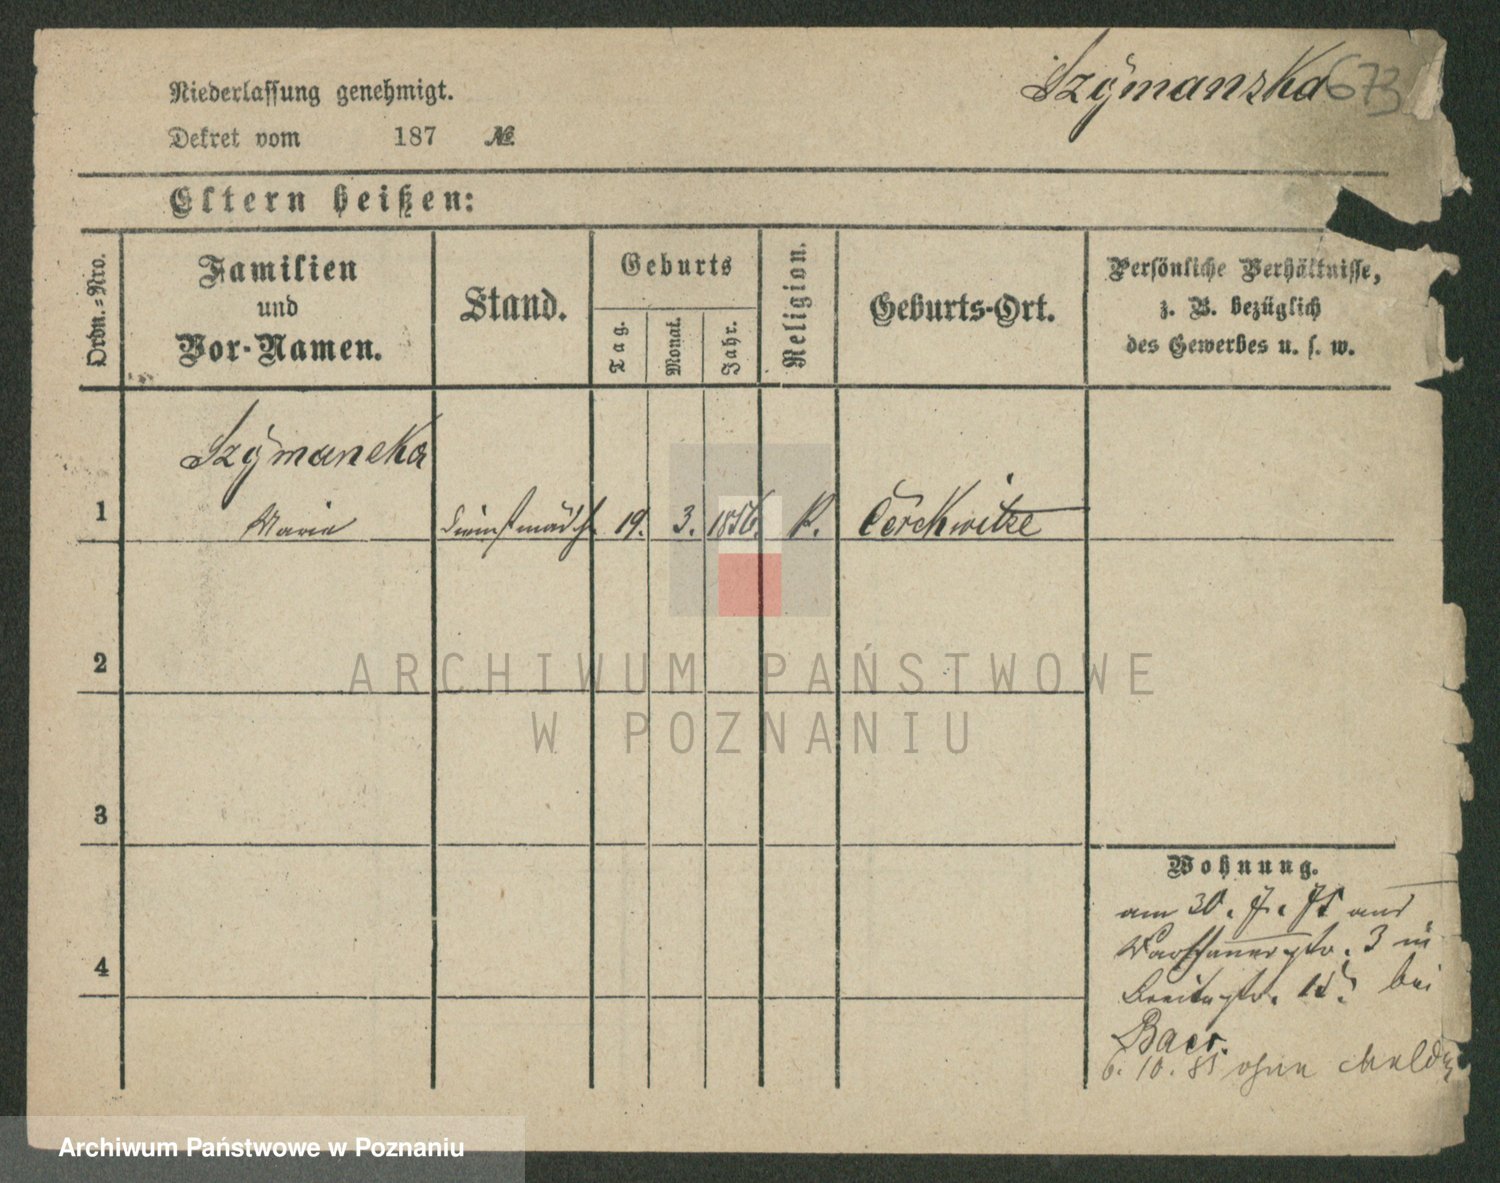 Szymanska 673
Niederlassung genehmigt.
Dekret vom 187 №
Eltern heißen:
Ordn.=Nro.
Familien
und
Vor-Namen.
Stand.
Geburts
Tag.
Monat.
Jahr.
Religion.
Geburts-Ort.
Persönliche Verhältnisse,
z. B. bezüglich
des Gewerbes u. s. w.
Szymanska
1 Marie Dienstmädch 19. 3. 1856. K. Cerekwitze
2
3
4
Wohnung.
am 30. 7. 81 aus
Warschauerstr. 3 in
Breitestr. bei
Baer.
6. 10. 81 ohne Meldg
ARCHIWUM PAŃSTWOWE
W POZNANIU
Archiwum Państwowe w Poznaniu